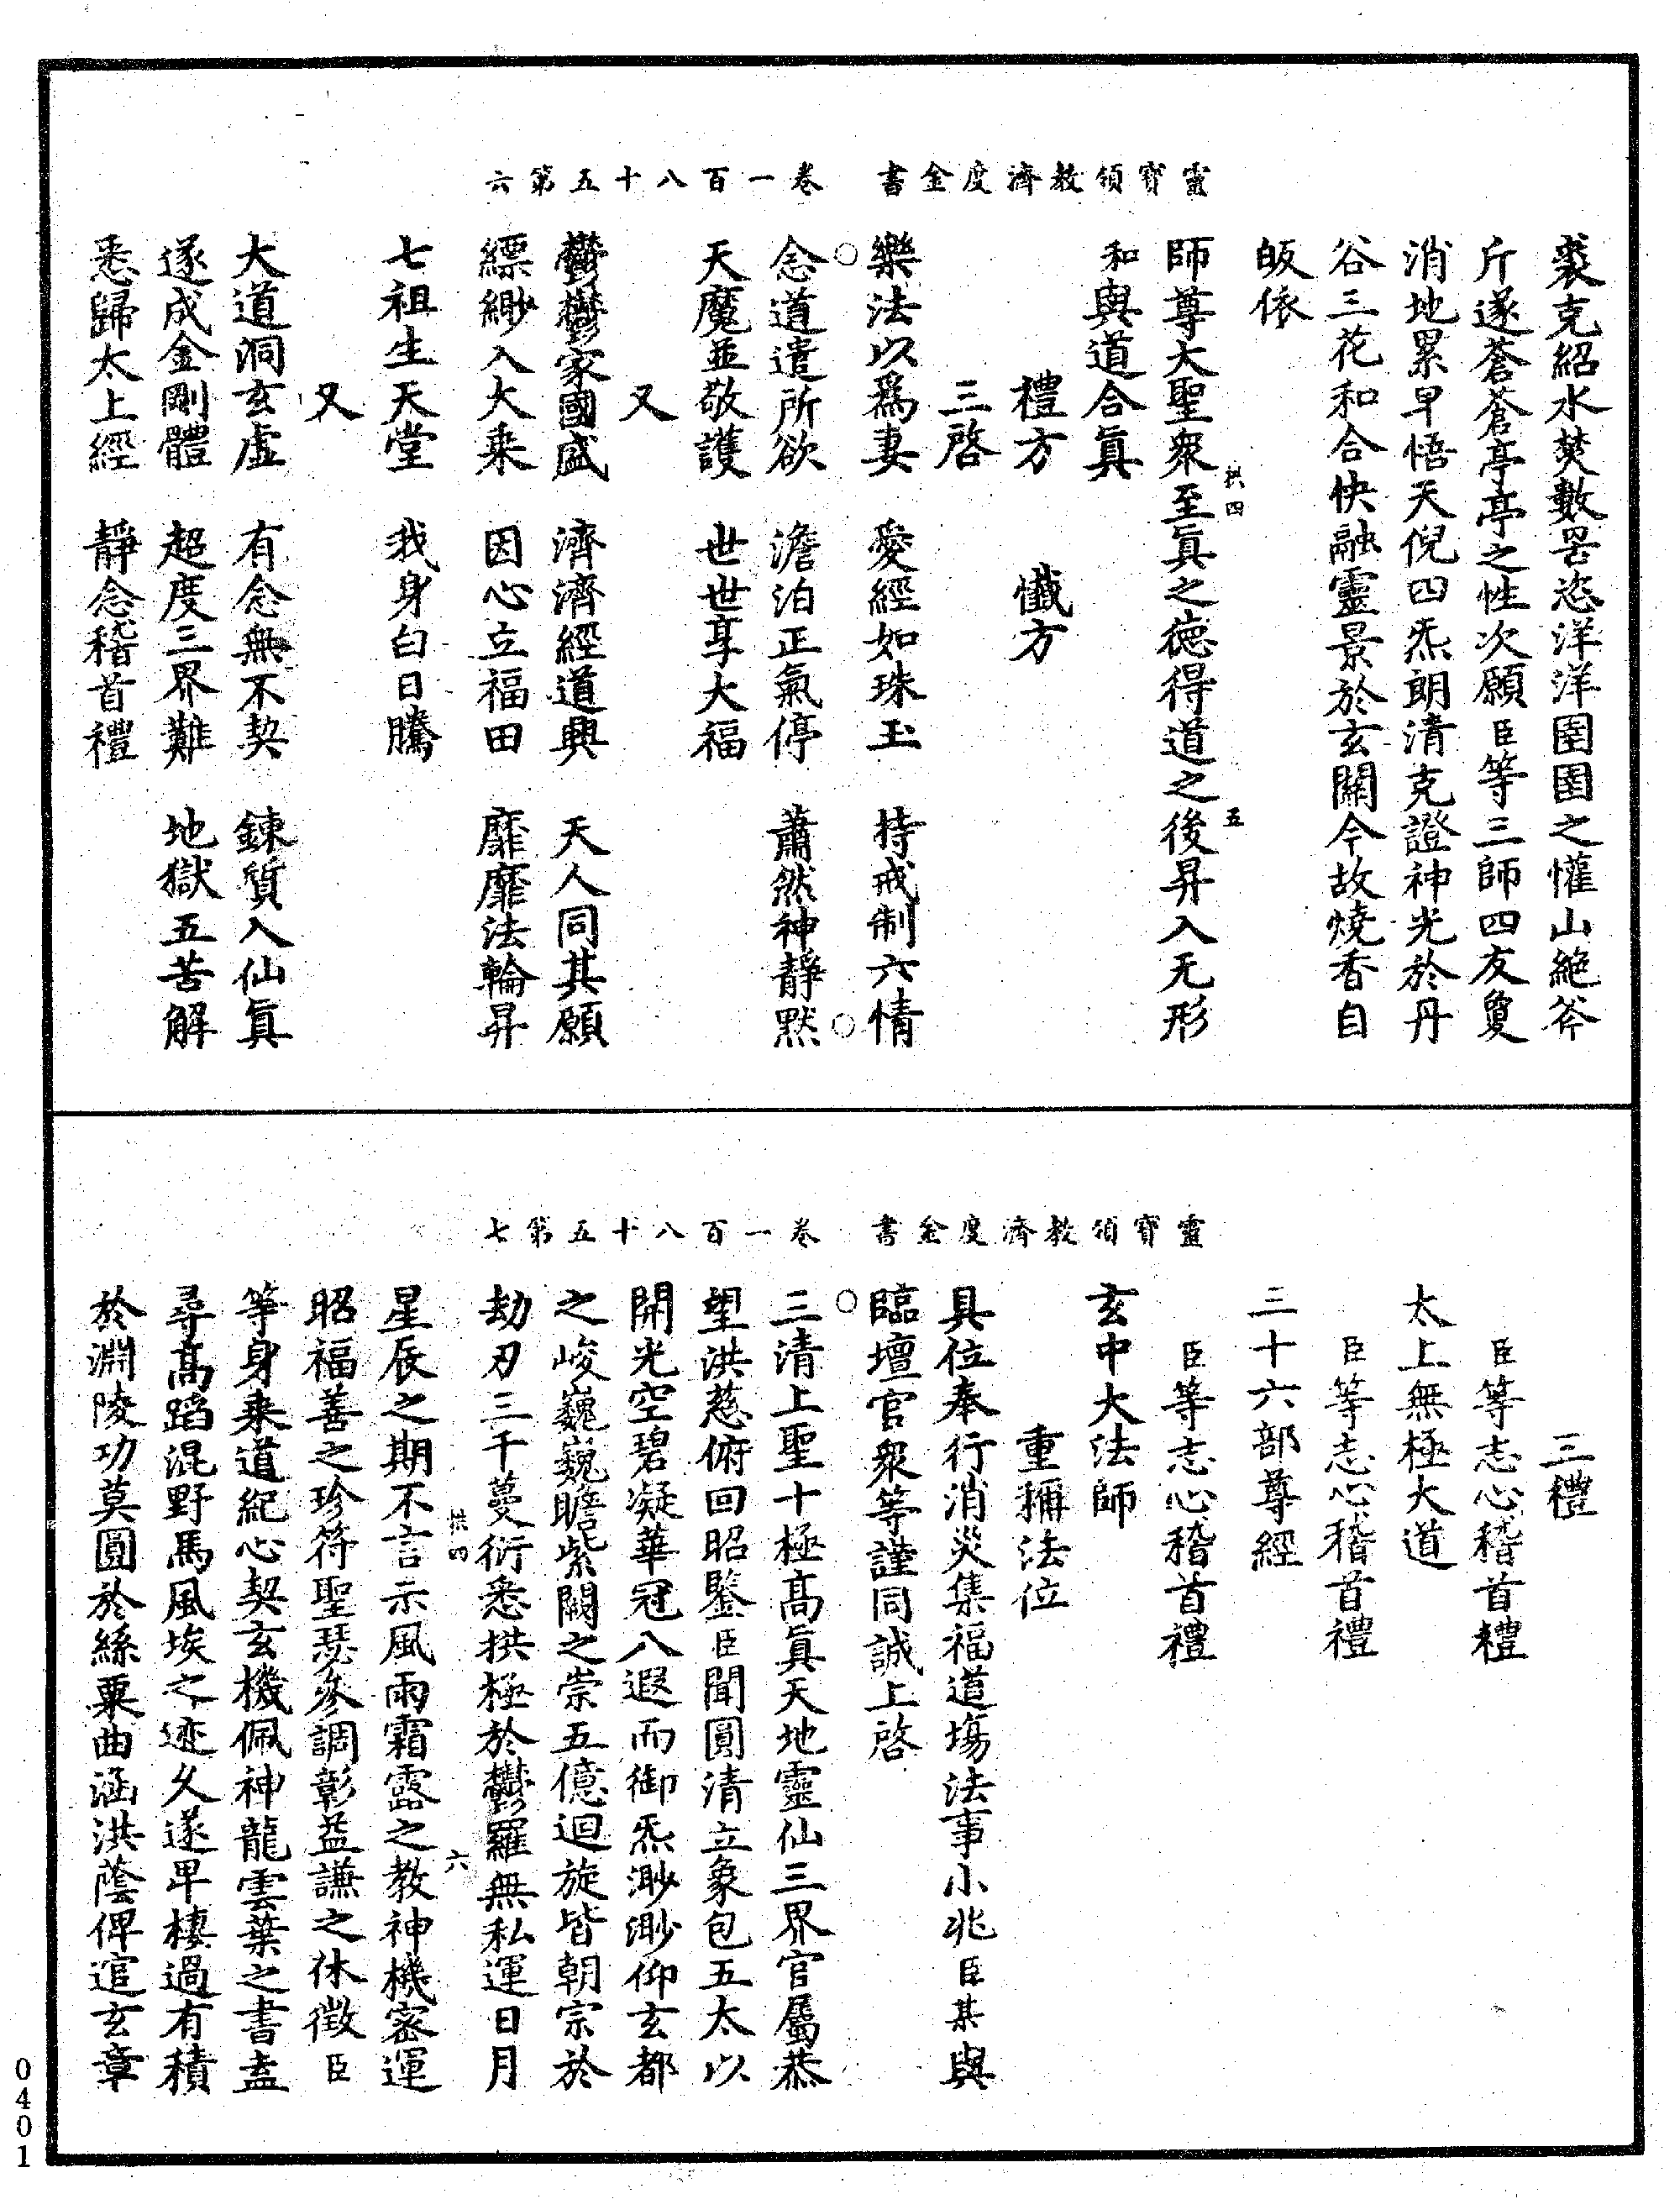 靈寶領教濟度金書　卷一百八十五第六
裘克紹水焚數罟恣洋洋圉圉之懽山絶斧
斤遂蒼蒼亭亭之性次願臣等三師四友夐
消地累早悟天倪四炁朗清克證神光於丹
谷三花和合快融靈景於玄關今故燒香自
皈依
師尊大聖衆至眞之德得道之後昇入无形
拱四　五
和與道合眞
禮方　懺方
三啓
樂法以爲妻　愛經如珠玉　持戒制六情
念道遣所欲　澹泊正氣停　蕭然神靜默
天魔並敬護　世世享大福
又
鬱鬱家國盛　濟濟經道興　天人同其願
縹緲入大乘　因心立福田　靡靡法輪昇
七祖生天堂　我身白日騰
又
大道洞玄虛　有念無不契　鍊質入仙眞
遂成金剛體　超度三界難　地獄五苦解
悉歸太上經　靜念稽首禮
靈寶領教濟度金書　卷一百八十五第七
三禮
臣等志心稽首禮
太上無極大道
臣等志心稽首禮
三十六部尊經
臣等志心稽首禮
玄中大法師
重稱法位
具位奉行消災集福道場法事小兆臣某與
臨壇官衆等謹同誠上啓
三清上聖十極高眞天地靈仙三界官屬恭
望洪慈俯回昭鑒臣聞圓清立象包五太以
開光空碧凝華冠八遐而御炁渺渺仰玄都
之峻巍巍瞻紫闕之崇五億迴旋皆朝宗於
劫刃三千蔓衍悉拱極於鬱羅無私運日月
拱四　六
星辰之期不言示風雨霜露之教神機密運
昭福善之珍符聖瑟參調彰益謙之休徵臣
等身乘道紀心契玄機佩神龍雲葉之書盍
尋高蹈混野馬風埃之迹久遂卑棲過有積
於淵陵功莫圓於絲粟曲涵洪蔭俾逭玄章
0401